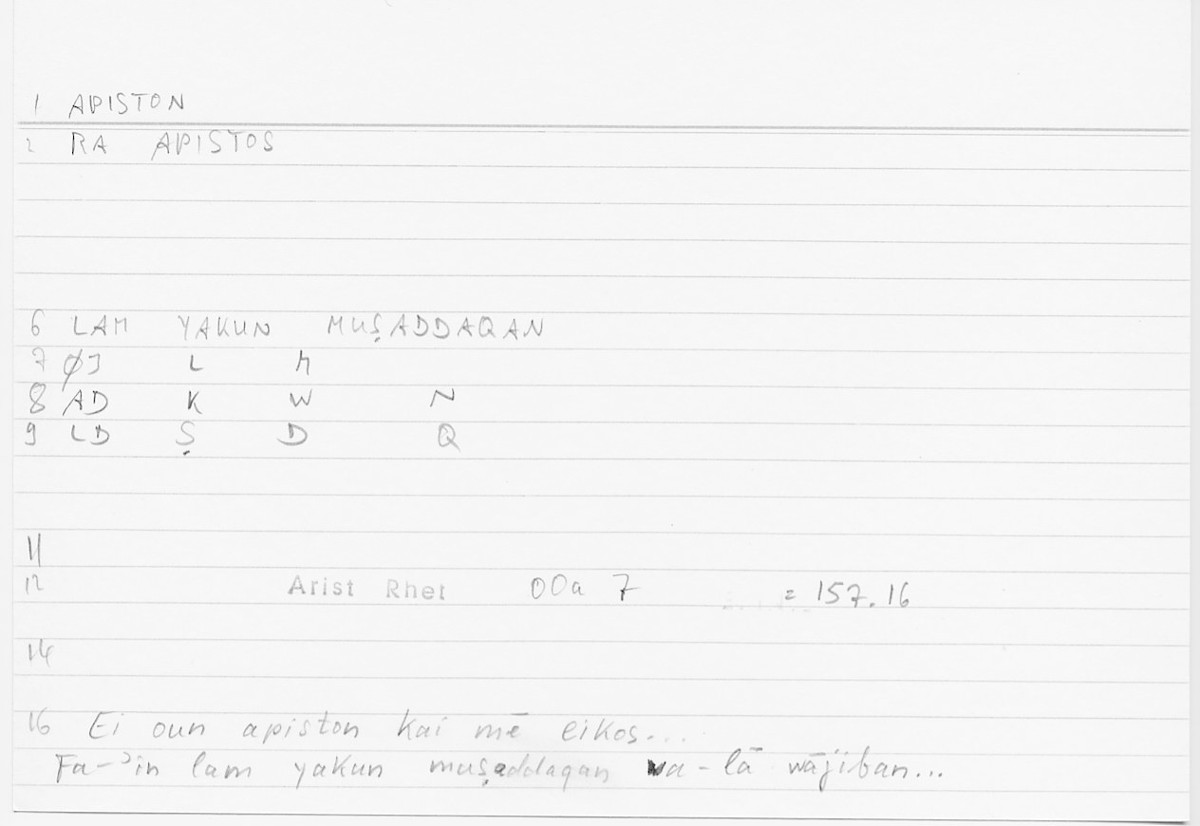 1 APISTON
2 RA APISTOS
6 LAM YAKUN MUṢADDAQAN
7 ØJ L M
8 AD K W N
9 LD Ṣ D Q
11
12 Arist Rhet 00a 7 = 157.16
14
16 Ei oun apiston kai mē eikos...
Fa-ʾin lam yakun muṣaddaqan wa-lā wājiban...